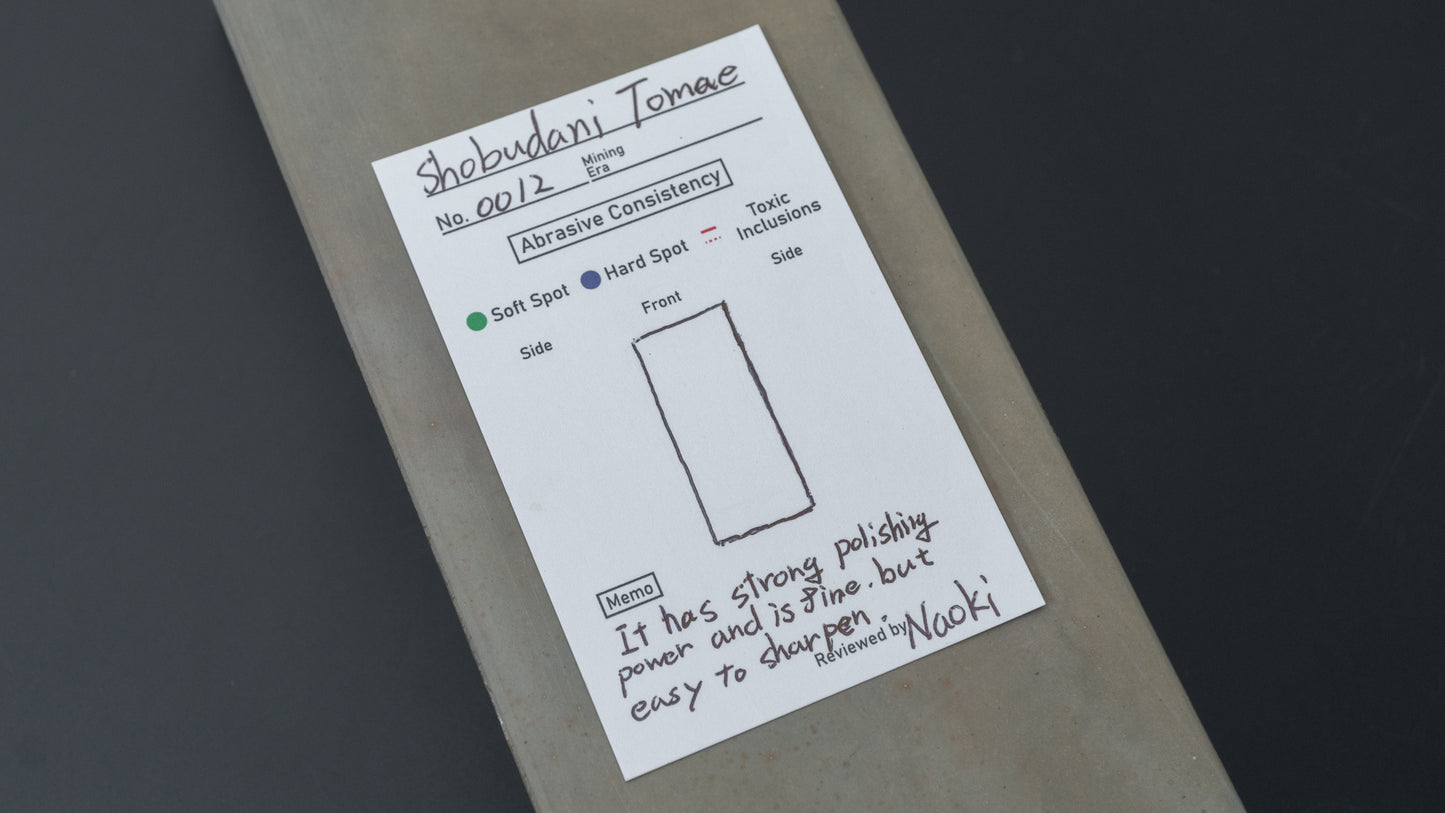 Shobudani Tomae
No. 0012 Mining Era
Abrasive Consistency
Soft Spot Hard Spot Toxic Inclusions
Side Front Side
Memo
It has strong polishing
power and is fine. but
easy to sharpen.
Reviewed by Naoki